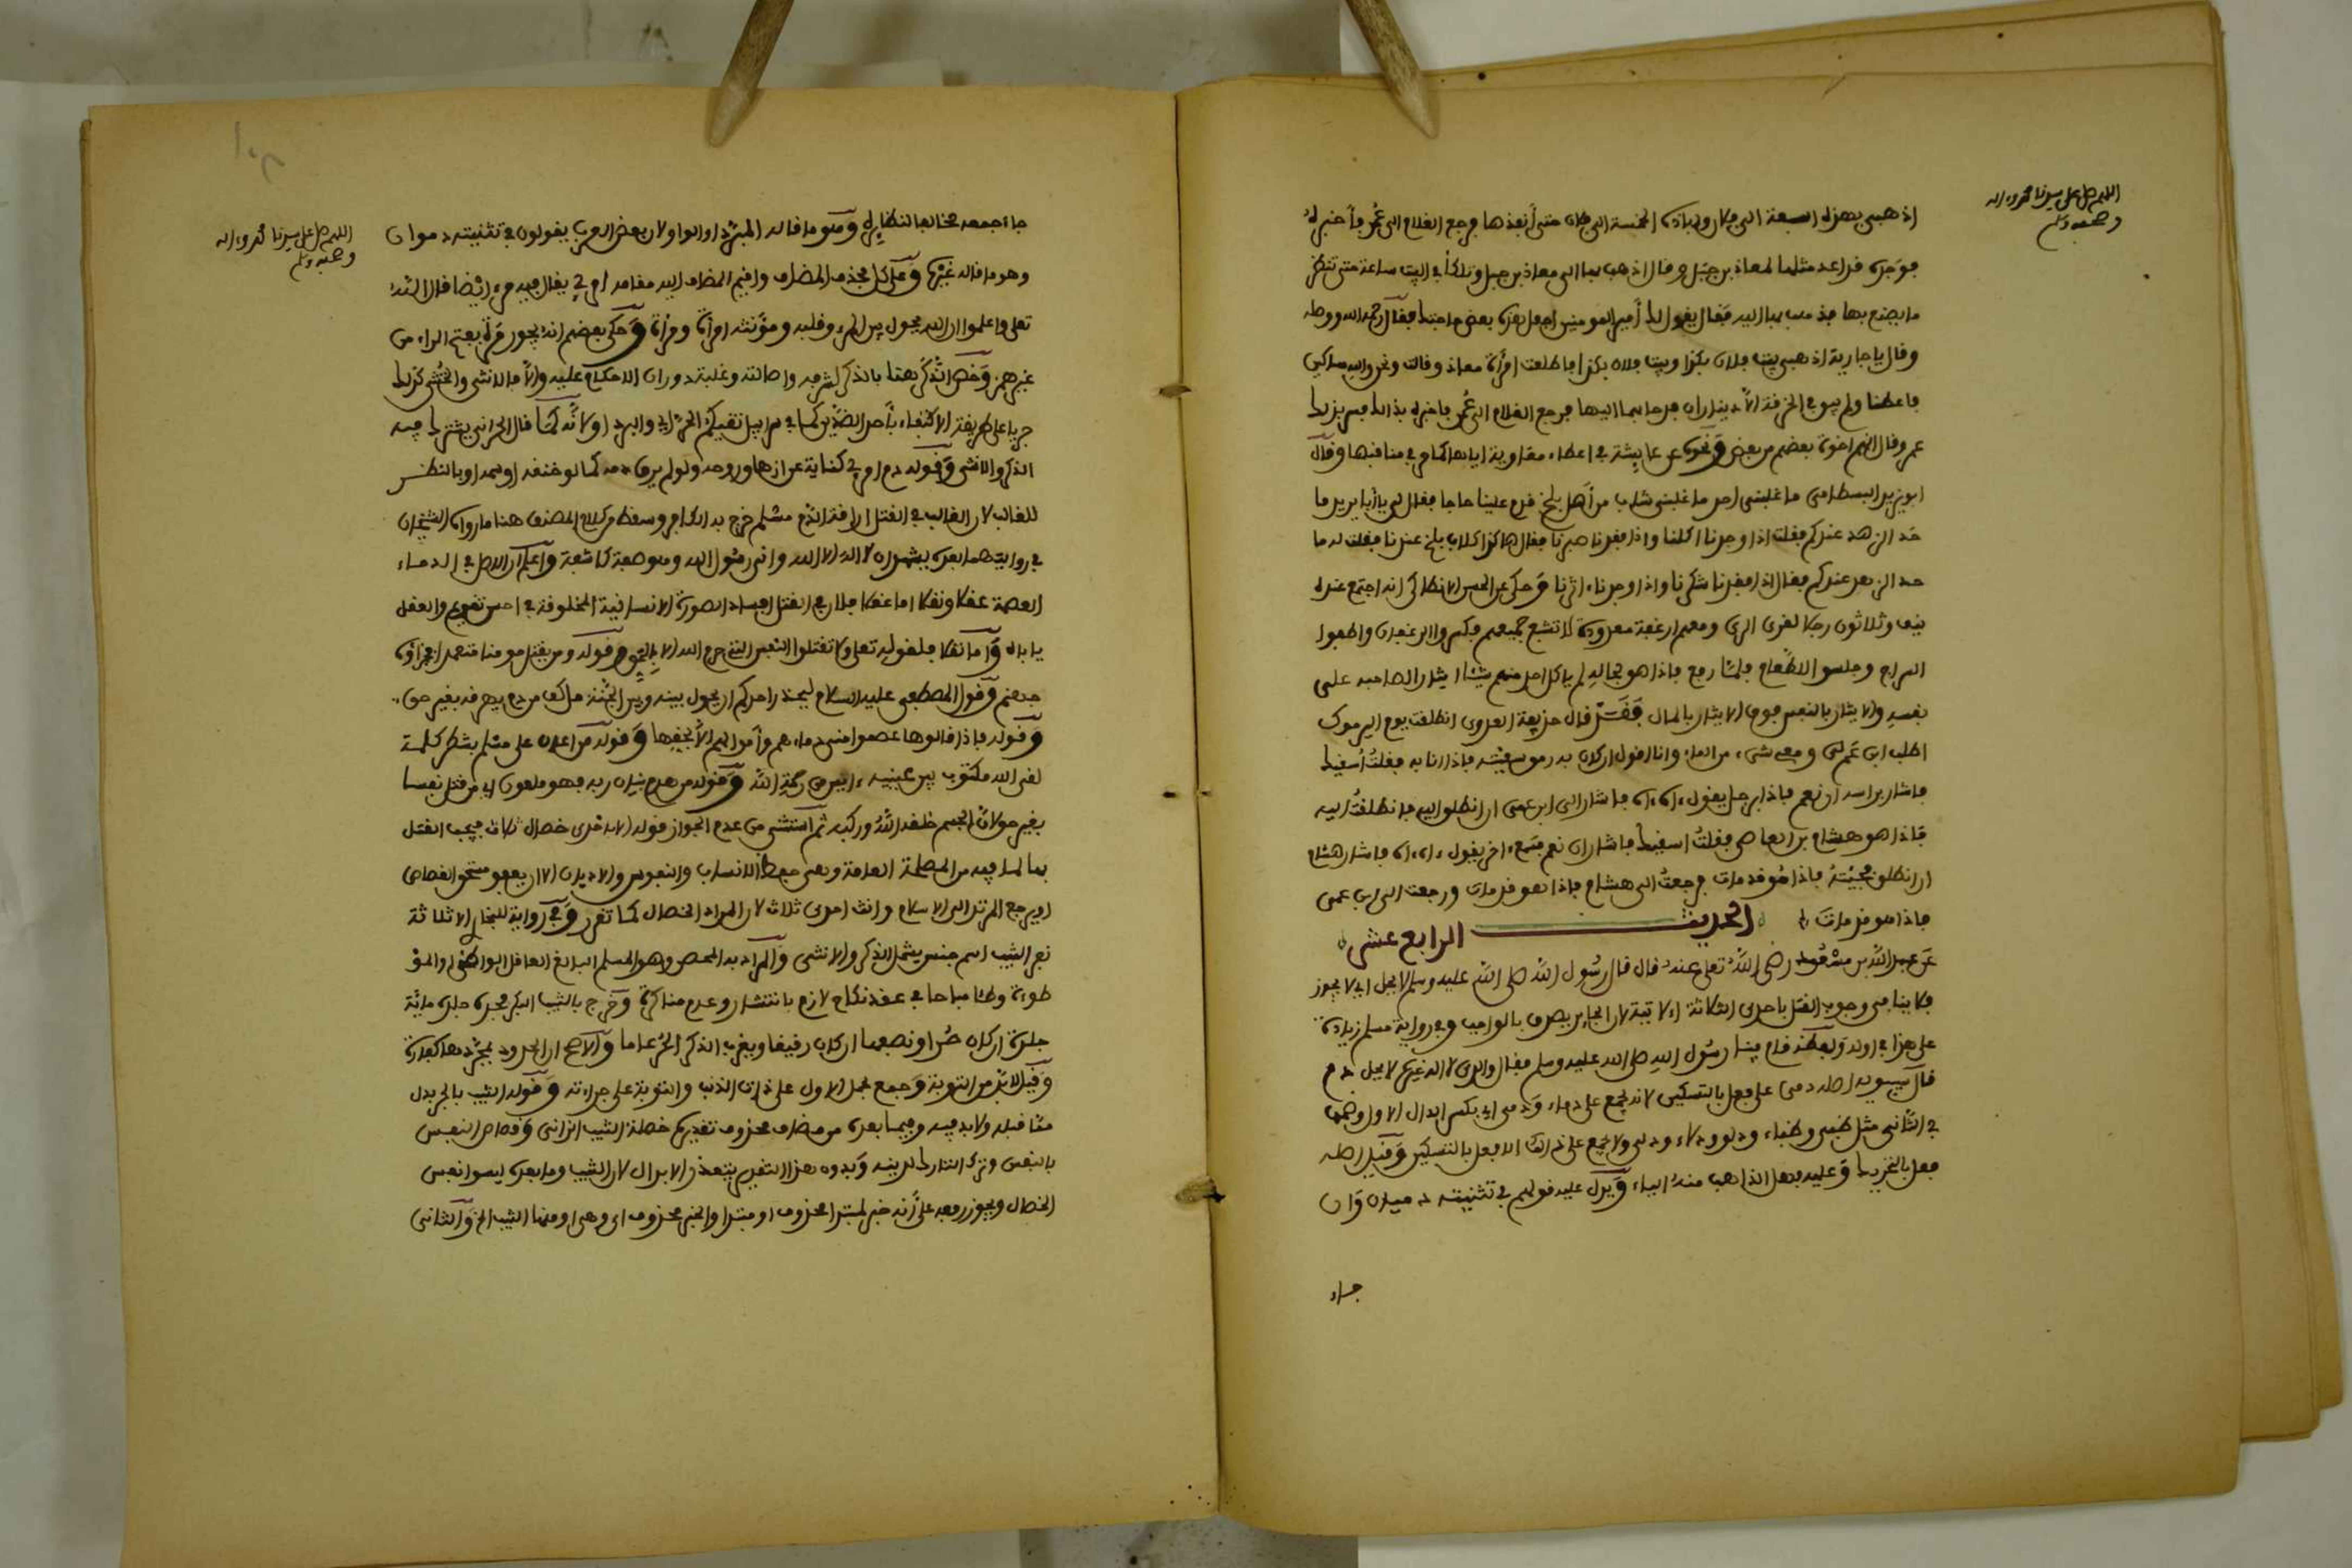 اللهم صل على سيدنا محمد وءاله
وصحبه وسلم
اذهبي بهذه السبعة الى فلان وبهاذه الخمسة الى فلان حتى أنفذها فرجع الغلام الى عُمر فأخبرهُ
فوَجده قد اعد مثلها لمعاذ بن جبَل وقال اذهب بها الى معاذ بن جبل وتلكأ في البيت ساعة حتى تنظر
ما يصنع بها فذهب بها اليه فقال يقول لك أمير المومنين اجعل هذه في بعض حاجتك فقال رحمه الله ووصله
وقال يا جارية اذهبي لبيت فلان بكذا وبيت فلان بكذا فاطلعت امرأة معاذ وقالت ونحن والله مساكين
فاعطنا ولم يبق في الخرقة الّا ديناران فرمى بهما اليها فرجع الغلام الى عُمر فاخبره بذالك فسر بذلك
عمر وقال انهم اخوة بعضهم من بعض ونحوه عن عايشة في اعطاء معاوية اياها كما في مناقبها وقال
ابو يزيد البسطامي ما غلبني احد ما غلبني شاب من أهل بلخ قدم علينا حاجا فقال لي يا أبا يزيد ما
حَد الزهد عندكم فقلت اذا وجدنا اكلنا واذا فقدنا صبرنا فقال هاكذا كلاب بلخ عندنا فقلت له ما
حد الزهد عندكم فقال اذا فقدنا شكرنا واذا وجدناءاثرنا وَحكي عن ابي الحسن الانطاكي انه اجتمع عنده
نيف وثلاثون رجلا لقرى الري ومعهم ارغفة معدودة لا تشبع جميعهم فكسروا الرغفان واطفوا
السراج وجلسوا للطعام فلما رفع فاذا هو بحاله لم ياكل احد منهم شيئا ايثارا لصاحبه على
نفسه والايثار بالنفس فوق الايثار بالمال فقد قال حذيفة العدوي انطلقت يوم اليرموك
اطلب ابن عم لي ومعي شيء من الماء وانا اقول ان كان به رمق سقيته فاذا انا به فقلتُ أسقيك
فاشار براسه ان نعم فاذا برجل يقول ءاه ءاه فاشار الي ابن عمي ان انطلق اليه فانطلقتُ اليه
فاذا هو هشام بن العاص فقلتُ اسقيك فاشار ان نعم فسمع ءاخر يقول ءاه ءاه فاشار هشام
ان انطلق فجئتهُ فاذا هُو قد مات فرجعتُ الى هشام فاذا هو قد مات ورجعت الى ابن عمي
فاذا هو قد مات الحديث الرابع عشر
عَن عبد الله بن مسعُود رضي اللهُ تعلى عنهُ قال قال رسُول الله صلى الله عليه وسلم لا يحل اي لا يجوز
فلا ينافي وجوب القتل باحدى الثلاثة الاتية لان الجايز يصدق بالواجب وفي رواية مسلم زيادة
على هذا في اوله ولفظه قام فينا رسُول الله صلى الله عليه وسلم فقال والذي لا اله غيره لا يحل دم
قال سيبويه اصله دمي على فعل بالتسكين لانه يُجمع على دماء وَدمي اي بكسر الدال الاول وضمها
في الثاني مثل ظبي وظباء ودلو ودلاء ودلي ولا يجمع على ذالك الا فعل بالتسكين وَقيل اصله
فعل بالتحريك وعليه فهل الذاهب منهُ الياء وَيدل عليه قولهم في تثنيته دميان وَان
جاء
اللهم صل على سيدنا محمد وءاله
وصحبه وسلم
جاء جمعه مخالفا لنظايره وهو ما قاله المبرد او الواو لان بعض العرب يقولون في تثنيته دموان
وهو ما قاله غيره وعلى كل بحذف المضاف واقيم المضاف اليه مقامه امرئ يقال فيه مرء ايضا قال الله
تعلى واعلموا ان الله يحول بين المرء وقلبه ومؤنثه امرأة ومرأة وَحكى بعضهم انهُ يجوز مَرة بفتح الراء من
غير همز وَخص الذكر هنا بالذكر لشرفه واصالته وغلبة دوران الاحكام عليه والّا فالانثى والخنثى كذلك
جريا على طريقة الاكتفاء بأحد الضدّين كما في سرابيل تقيكم الحر اي والبرد او لانّه كما قال الحراني يشترك فيه
الذكر والانثى وَقوله دم امرئ كناية عن ازهاق روحه ولو لم يرق دمه كما لو خنقه او سمه او بالنظر
للغالب لان الغالب في القتل اراقة الدّم مسلم خرج به الكافر وسقط من كلام المصنف هنا ما رواه الشيخان
في روايتهما بعده يشهد ان لا اله الا الله واني رسُول الله وهو صفة كاشفة وَاعلم ان الاصل في الدماء
العصمة عقلا ونقلا اما عقلا فلان في القتل افساد الصورة الانسانية المخلوقة في احسن تقويم والعقل
ياباه وَاما نقلا فلقوله تعلى ولا تقتلوا النفس التي حرم الله الا بالحق وقوله ومن يقتل مومنا متعمدا فجزاؤه
جهنم وَقول المصطفى عليه السلام ليحذر احدكم ان يحول بينه وبين الجنّة ملء كف من دم يهرقه بغير حق
وَقوله فاذا قالوها عصموا مني دماءهم وأموالهم الّا بحقها وَقوله من اعان على قتل مسلم بشطر كلمة
لقي الله مكتوب بين عينيه ءايس من رحمة الله وَقوله من هدم بنيان ربه فهو ملعون اي من قتل نفسا
بغير حق لان الجسم خلقه اللهُ وركبه ثم استثنى من عدم الجواز قوله الا باحدى خصال ثلاث فيجب القتل
بها لما فيه من المصلحة العامة وهي حفظ الانساب والنفوس والاديان الا ان يعفو مستحق القصاص
او يرجع المرتد الى الاسلام وانث احدى ثلاث لان المراد الخصال كما تقرر وَفي رواية للبخاري الا ثلاثة
نفر الثيب اسم جنس يشمل الذكر والانثى وَالمراد به المحصن وهو المسلم البالغ العاقل الواطئ او الموـ
طوءة وطئا مباحا في عقد نكاح لازم بانتشار وعدم مناكرة وَخرج بالثيب البكر فحده جلد مائة
جلدة ان كان حُرا ونصفها ان كان رقيقا ويغرب الذكر الحُر عاما وَالاصح ان الحدود بمجردها كفارة
وَقيل لابد من التوبة وَجمع بحمل الاول على ذات الذنب والتوبة على جراءته وَقوله الثيب بالجر بدل
مما قبله ولا بد فيه وفيما بعده من مضاف محذوف تقديره خصلة الثيب الزاني وَقصاص النفس
بالنفس وترك التارك لدينه وَبدون هذا التقدير يتعذر الابدال لان الثيب وما بعده ليسوا نفس
الخصال ويجوز رفعه على أنه خبر لمبتدا محذوف او مبتدا والخبر محذوف اي وهي او منها الثيب الخ وَالثاني